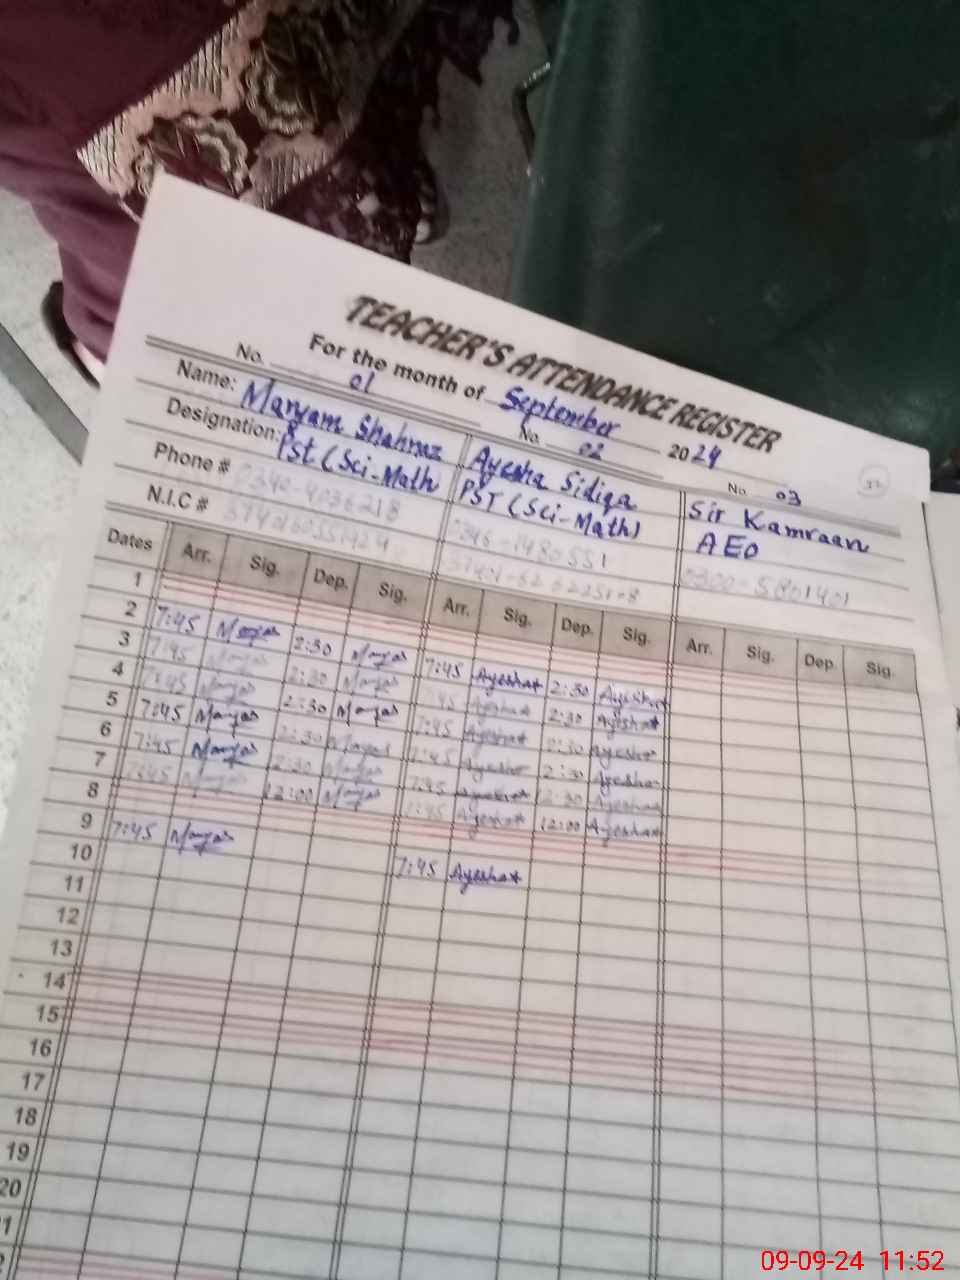 TEACHER'S ATTENDANCE REGISTER
For the month of September 2024
No. 01 No. 02 No. 03
Name: Maryam Shahnaz Ayesha Sidiqa Sir Kamraan
Designation: Pst (Sci-Math PST (Sci-Math) AEO
Phone # 0340-4036218 0346-1480551 0300-5801401
N.I.C #
Dates Arr. Sig. Dep. Sig. Arr. Sig. Dep. Sig. Arr. Sig. Dep. Sig.
1
2 7:45 Maryam 2:30 Maryam 7:45 Ayesha 2:30 Ayesha
3 7:45 Maryam 2:30 Maryam 7:45 Ayesha 2:30 Ayesha
4 7:45 Maryam 2:30 Maryam 7:45 Ayesha 2:30 Ayesha
5 7:45 Maryam 2:30 Maryam 7:45 Ayesha 2:30 Ayesha
6 7:45 Maryam 2:30 Maryam 7:45 Ayesha 12:30 Ayesha
7 7:45 Maryam 12:00 Maryam 7:45 Ayesha 12:00 Ayesha
8
9 7:45 Maryam 7:45 Ayesha
10
11
12
13
14
15
16
17
18
19
20
09-09-24 11:52